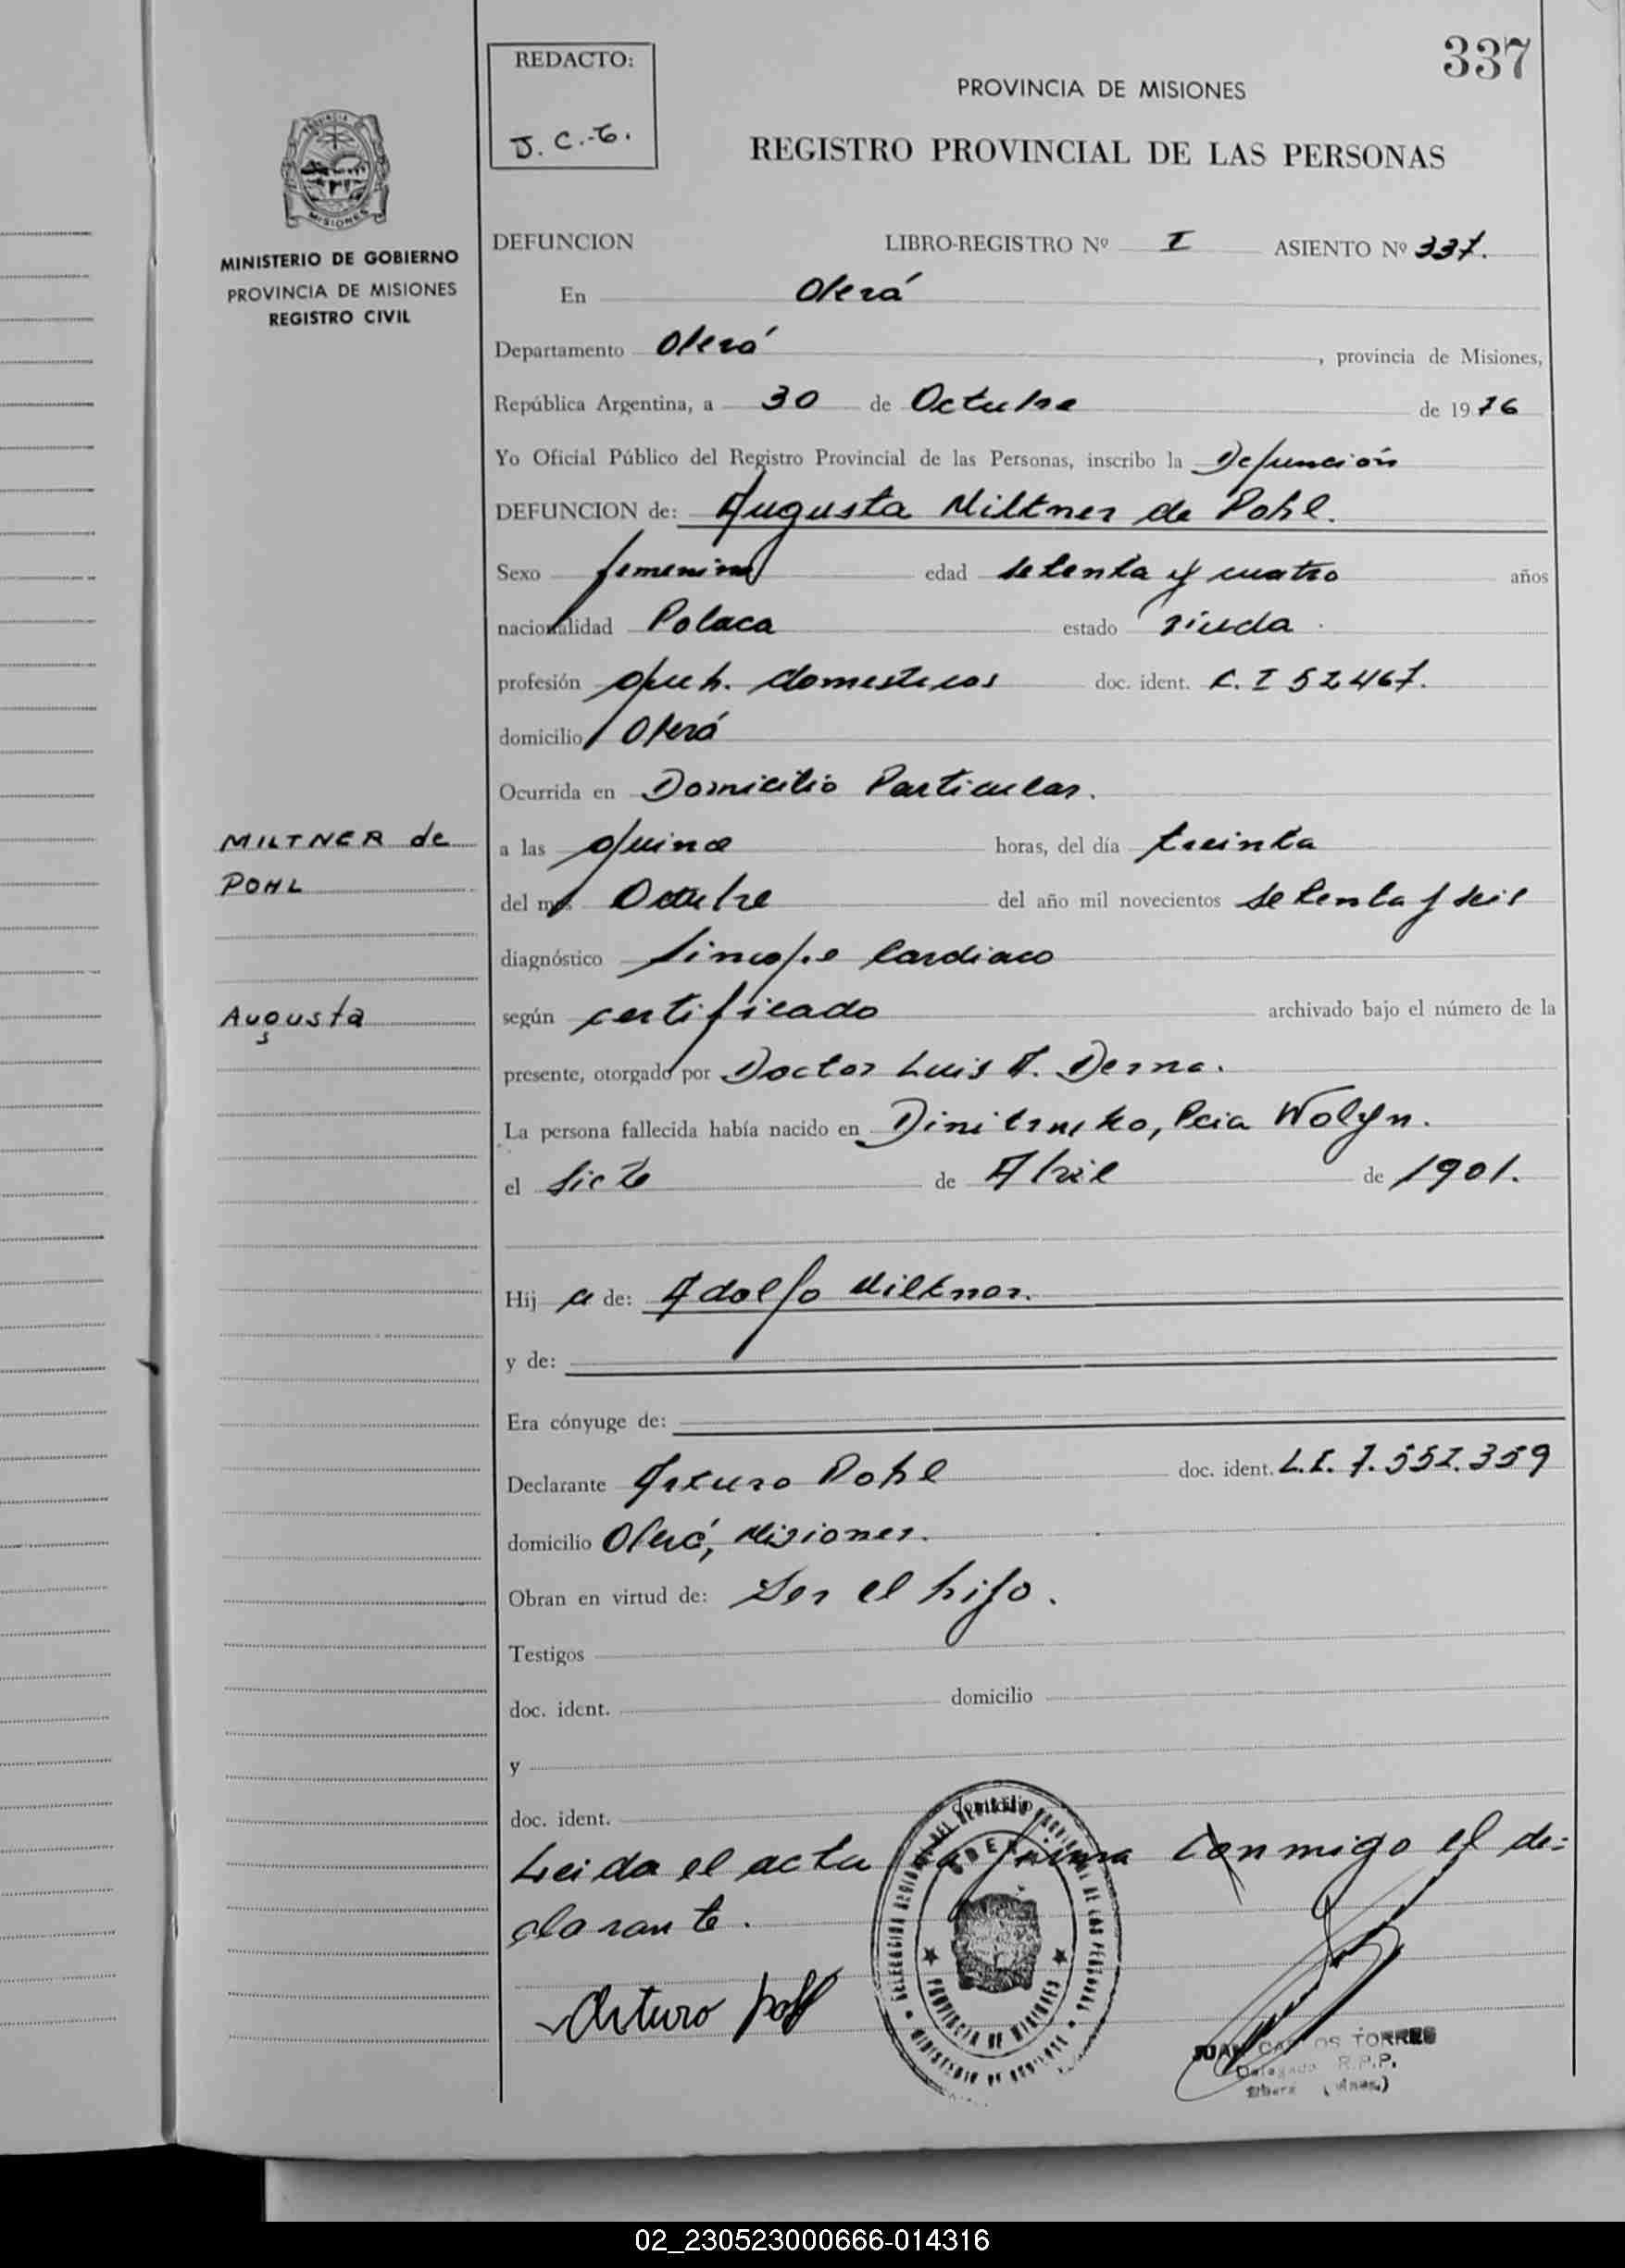 337
REDACTO:
J. C. T.
PROVINCIA DE MISIONES
REGISTRO PROVINCIAL DE LAS PERSONAS
MISIONES
MINISTERIO DE GOBIERNO
PROVINCIA DE MISIONES
REGISTRO CIVIL
DEFUNCION LIBRO-REGISTRO Nº I ASIENTO Nº 337.
En Oberá
Departamento Oberá, provincia de Misiones,
República Argentina, a 30 de Octubre de 1976
Yo Oficial Público del Registro Provincial de las Personas, inscribo la Defunción
DEFUNCION de: Augusta Miltner de Pohl.
Sexo femenino edad setenta y cuatro años
nacionalidad Polaca estado viuda.
profesión queh. domesticos doc. ident. C. I 52467.
domicilio Oberá
Ocurrida en Domicilio Particular.
MILTNER de
POHL
Augusta
a las quince horas, del día treinta
del mes Octubre del año mil novecientos setenta y seis
diagnóstico sincope Cardiaco
según certificado archivado bajo el número de la
presente, otorgado por Doctor Luis A. Derna.
La persona fallecida había nacido en Pcia Wolyn.
el siete de Abril de 1901.
Hij a de: Adolfo Miltner.
y de:
Era cónyuge de:
Declarante Arturo Pohl doc. ident. L.E. 7.552.359
domicilio Oberá, Misiones.
Obran en virtud de: Ser el hijo.
Testigos
doc. ident. domicilio
y
doc. ident. domicilio
Leida el acta la firma conmigo el de-
clarante.
Arturo Pohl
PROVINCIA DE MISIONES
JUAN CARLOS TORRES
Delegado R.P.P.
Oberá (Mnes.)
02_230523000666-014316